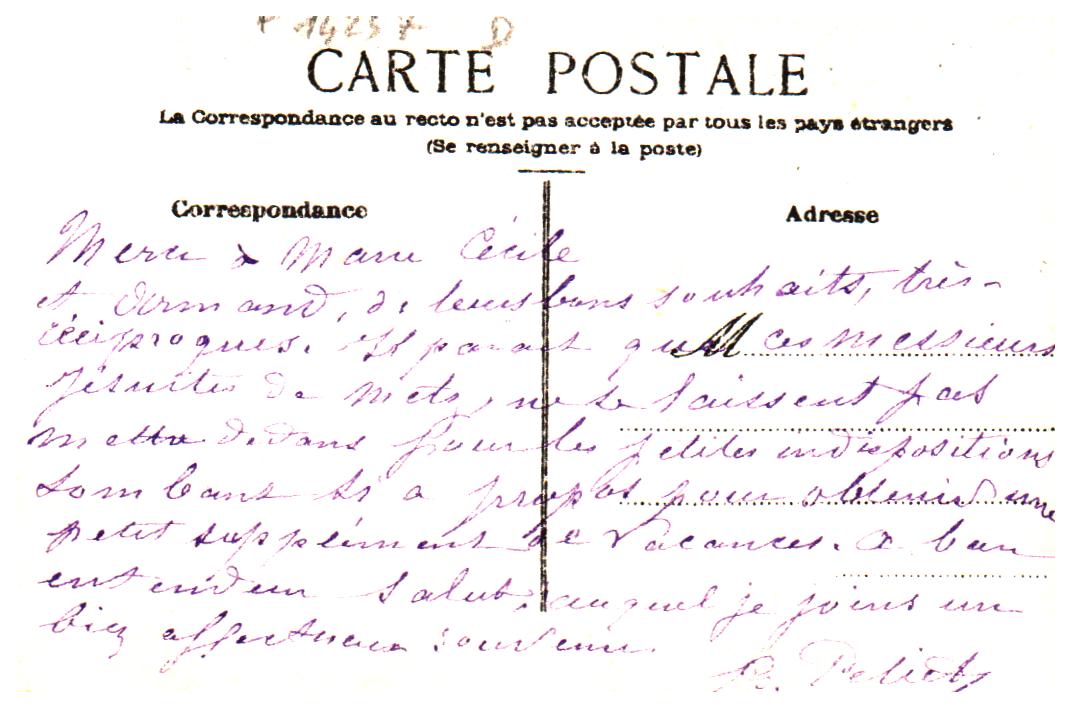 14257 D
CARTE POSTALE
La Correspondance au recto n'est pas acceptée par tous les pays étrangers
(Se renseigner à la poste)
Correspondance
Adresse
M
Merci à Marie Cécile
et Armand, de leurs bons souhaits, très-
réciproques. Il parait que ces messieurs
Jésuites de Metz, ne se laissent pas
mettre dedans pour les petites indispositions
tombant si à propos pour obtenir une
petit supplément de vacances. A bon
entendeur salut, auquel je joins un
bien affectueux souvenir.